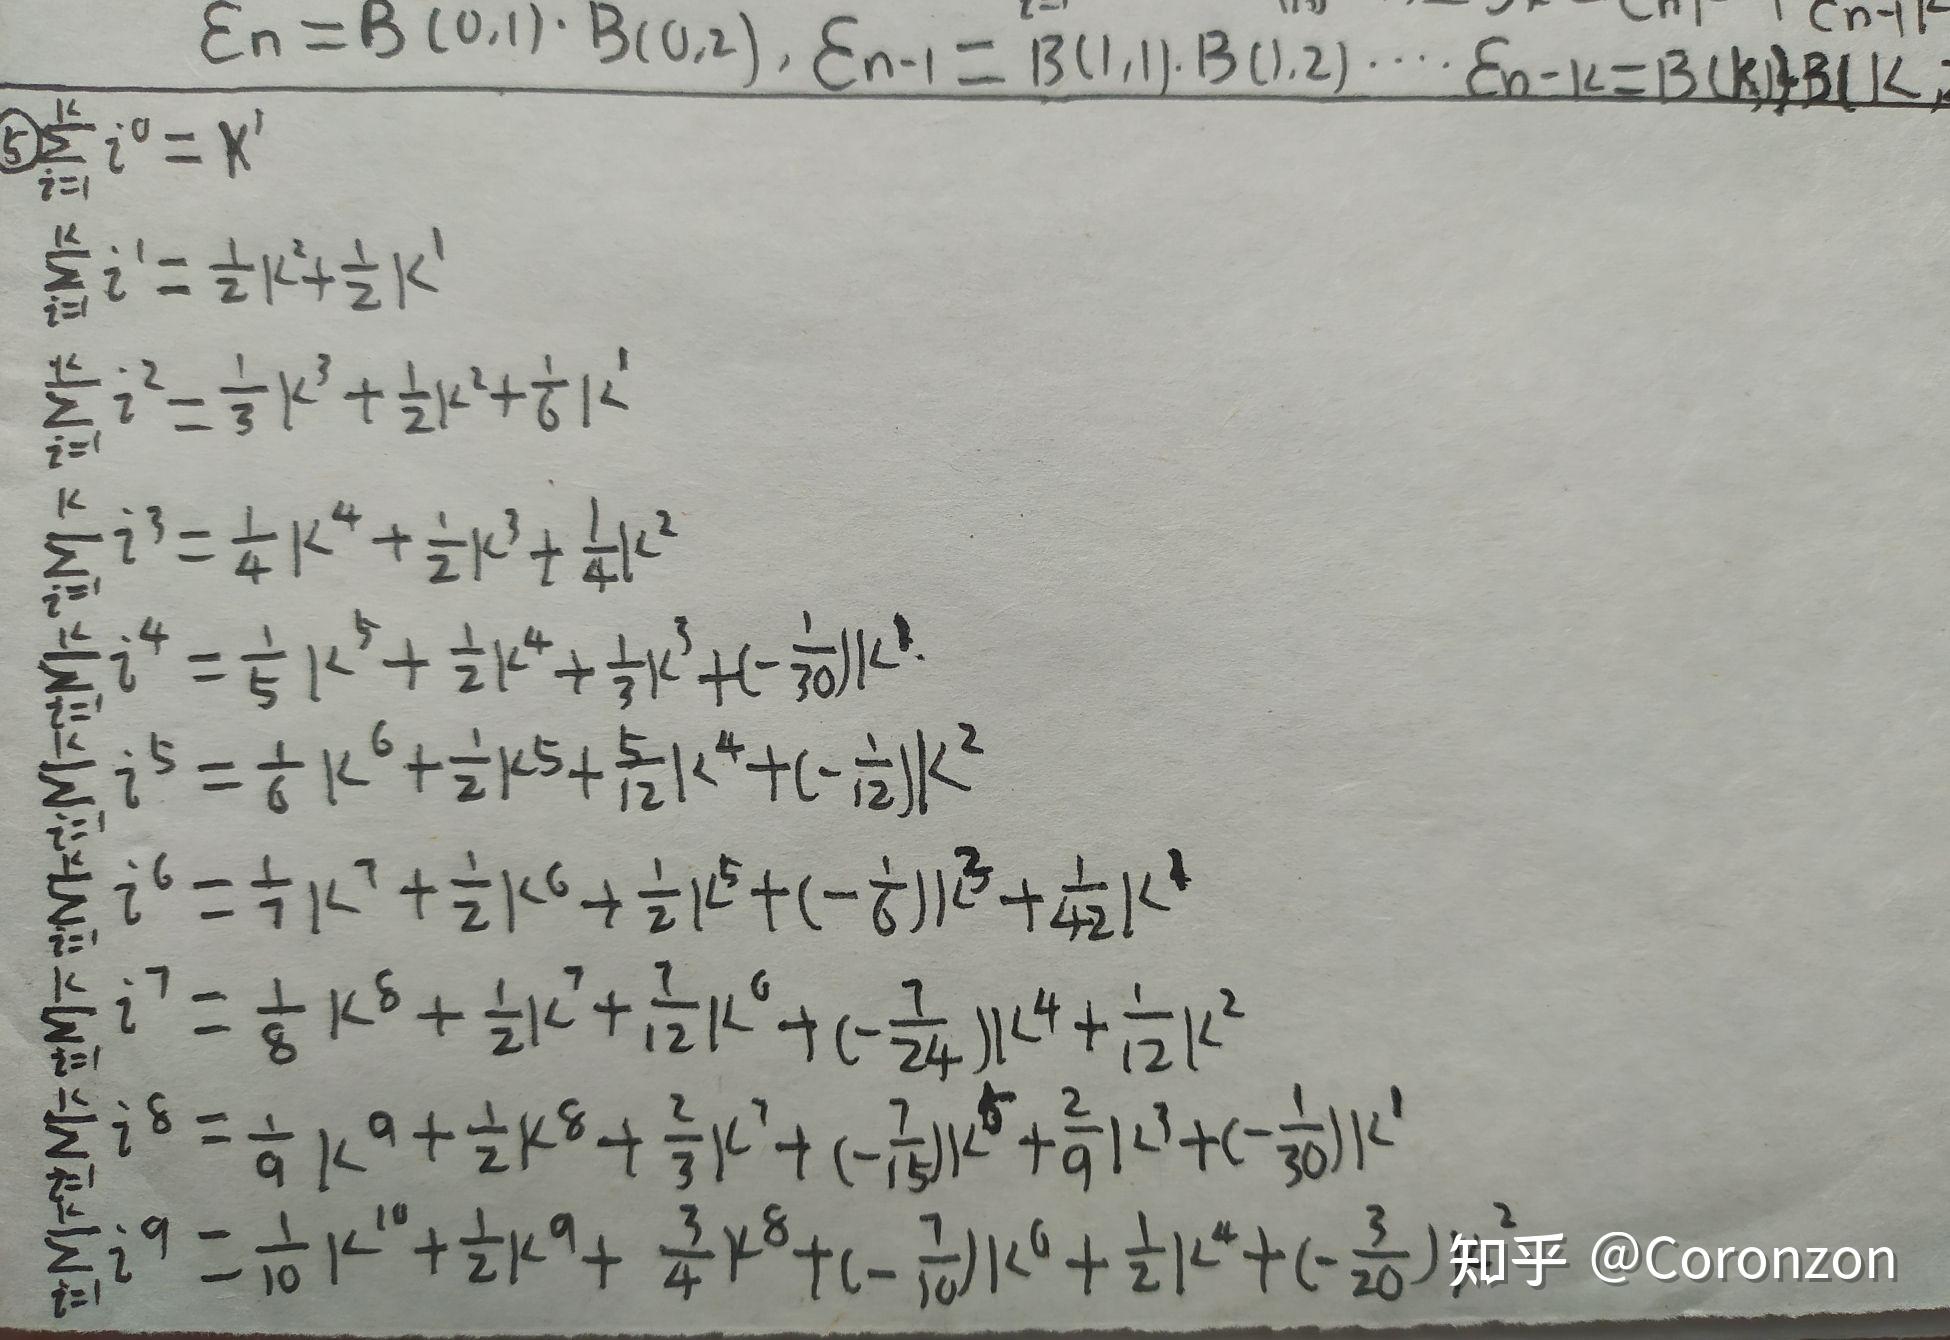 εn = B(0,1)·B(0,2), εn-1 = B(1,1)·B(1,2)····εn-k = B(k,1)·B(k,
⑤ ∑_{i=1}^{k} i^0 = k^1
∑_{i=1}^{k} i^1 = 1/2 k^2 + 1/2 k^1
∑_{i=1}^{k} i^2 = 1/3 k^3 + 1/2 k^2 + 1/6 k^1
∑_{i=1}^{k} i^3 = 1/4 k^4 + 1/2 k^3 + 1/4 k^2
∑_{i=1}^{k} i^4 = 1/5 k^5 + 1/2 k^4 + 1/3 k^3 + (-1/30)k^1.
∑_{i=1}^{k} i^5 = 1/6 k^6 + 1/2 k^5 + 5/12 k^4 + (-1/12)k^2
∑_{i=1}^{k} i^6 = 1/7 k^7 + 1/2 k^6 + 1/2 k^5 + (-1/6)k^3 + 1/42 k^1
∑_{i=1}^{k} i^7 = 1/8 k^8 + 1/2 k^7 + 7/12 k^6 + (-7/24)k^4 + 1/12 k^2
∑_{i=1}^{k} i^8 = 1/9 k^9 + 1/2 k^8 + 2/3 k^7 + (-7/15)k^5 + 2/9 k^3 + (-1/30)k^1
∑_{i=1}^{k} i^9 = 1/10 k^10 + 1/2 k^9 + 3/4 k^8 + (-7/10)k^6 + 1/2 k^4 + (-3/20)k^2
知乎 @Coronzon